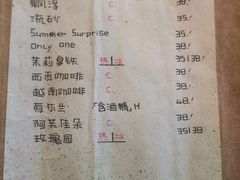 飘浮 C. 38.
流砂 C. 35.
Summer Surprise 38.
Only one 38.
茉莉拿铁 热|冰 35|38!
西贡咖啡 C. 38!
越南咖啡 C. 38!
爱尔兰 (含酒精) H 48!
阿芙佳朵 C. 38!
玫瑰园 热|冰 35|38